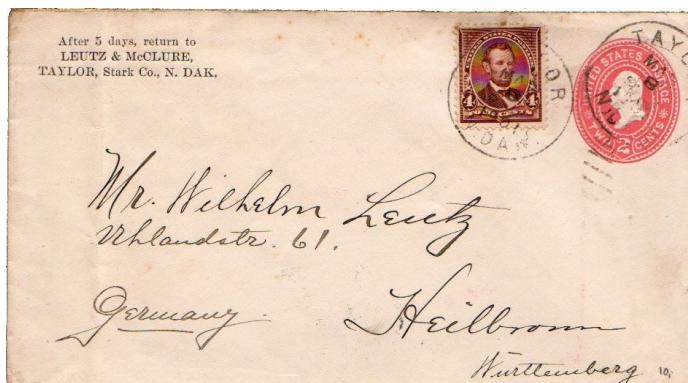 After 5 days, return to
LEUTZ & McCLURE,
TAYLOR, Stark Co., N. DAK.
4
DAK.
TAYL
UNITED STATES POSTAGE
TWO 2 CENTS
Mr. Wilhelm Leutz
Uhlandstr. 61.
Germany.
Heilbronn
Württemberg
10,